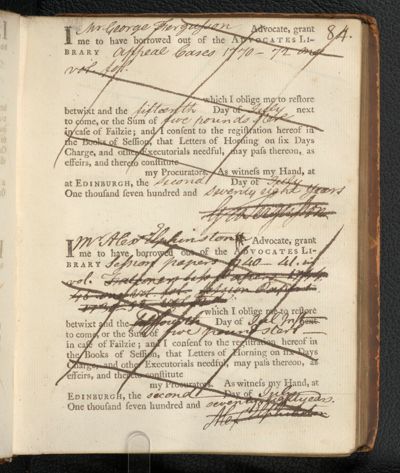 84.
I Mr George Fergusson Advocate, grant
me to have borrowed out of the ADVOCATES LI-
BRARY Appeal Cases 1770-72 and
vol.
which I oblige me to restore
betwixt and the fifteenth Day of July next
to come, or the Sum of five pounds
in case of Failzie; and I consent to the registration hereof in
the Books of Session, that Letters of Horning on six Days
Charge, and other Executorials needful, may pass thereon, as
effeirs, and thereto constitute
my Procurators. As witness my Hand, at
at EDINBURGH, the Second Day of July
One thousand seven hundred and seventy eight years
I Mr Alexr Elphinston Advocate, grant
me to have borrowed out of the ADVOCATES LI-
BRARY Session papers
vol.
which I oblige me to restore
betwixt and the Day of
to come, or the Sum of five pounds
in case of Failzie; and I consent to the registration hereof in
the Books of Session, that Letters of Horning on six Days
Charge, and other Executorials needful, may pass thereon, as
effeirs, and thereto constitute
my Procurators. As witness my Hand, at
EDINBURGH, the second Day of July
One thousand seven hundred and seventy eight years.
Alex Elphinston